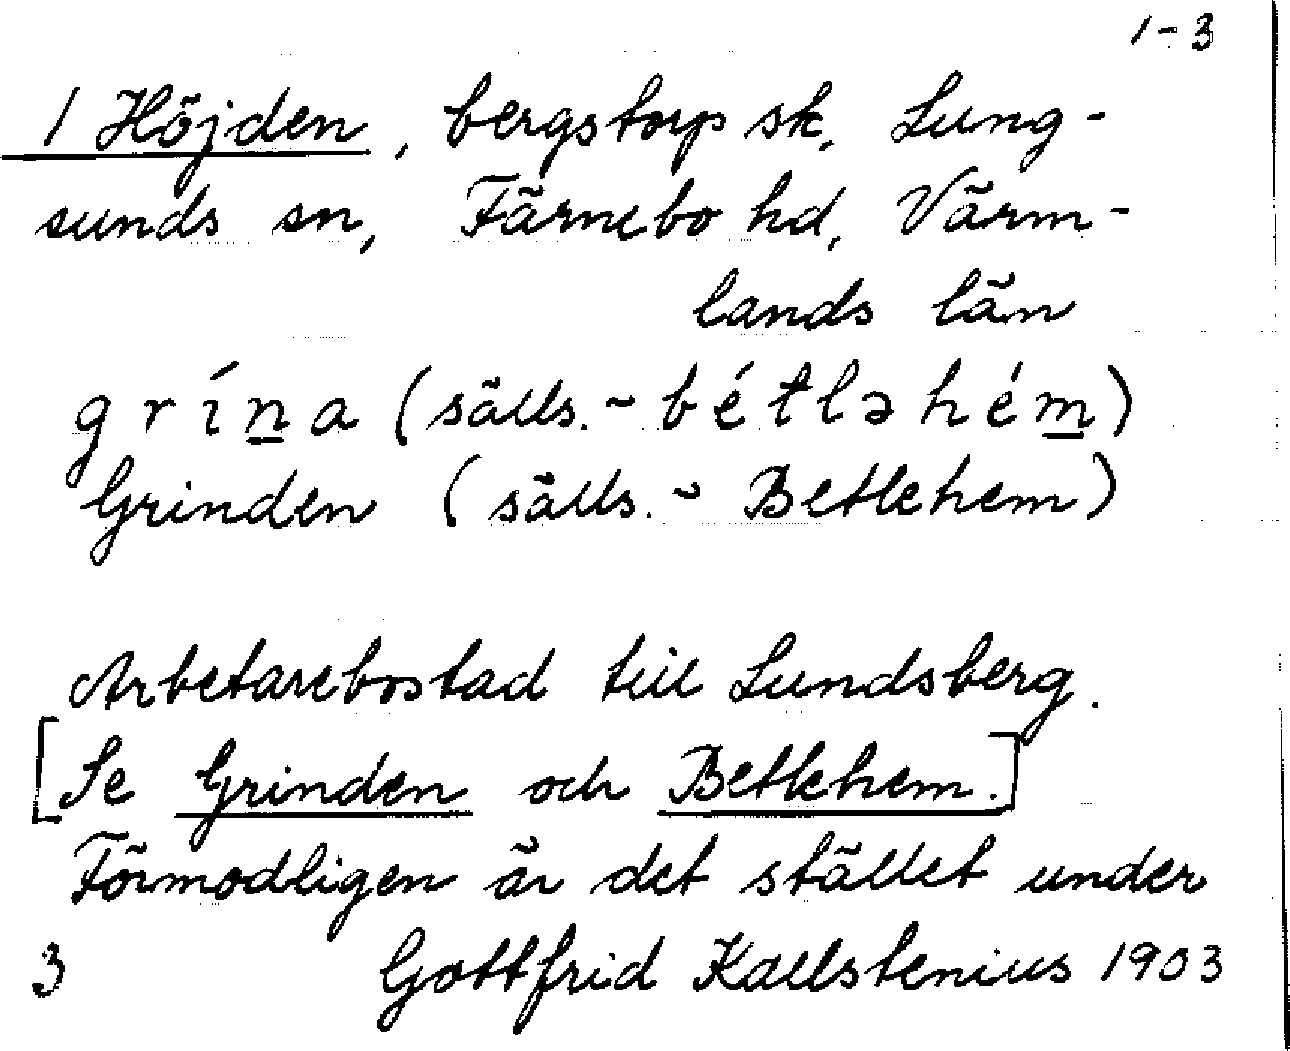 1-3
1 Höjden, bergstorp sk, Lung-
sunds sn, Färnebo hd, Värm-
lands län
grína (sälls. ~ bétləhém)
Grinden (sälls. ~ Betlehem)
Arbetarebostad till Lundsberg.
[Se Grinden och Betlehem.]
Förmodligen är det stället under
3 Gottfrid Kallstenius 1903